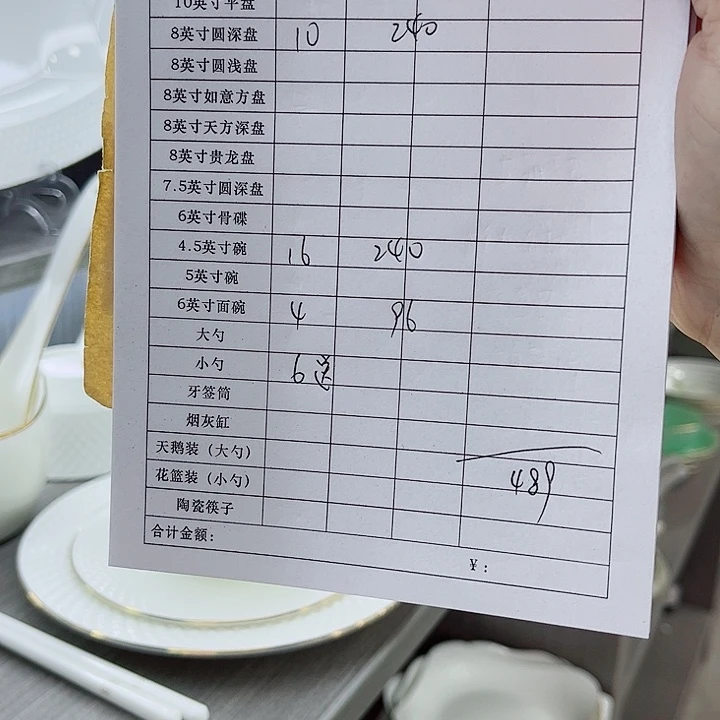 10英寸平盘
8英寸圆深盘 10 240
8英寸圆浅盘
8英寸如意方盘
8英寸天方深盘
8英寸贵龙盘
7.5英寸圆深盘
6英寸骨碟
4.5英寸碗 16 240
5英寸碗
6英寸面碗 4 96
大勺
小勺 6送
牙签筒
烟灰缸
天鹅装（大勺）
花篮装（小勺） 489
陶瓷筷子
合计金额：
¥：